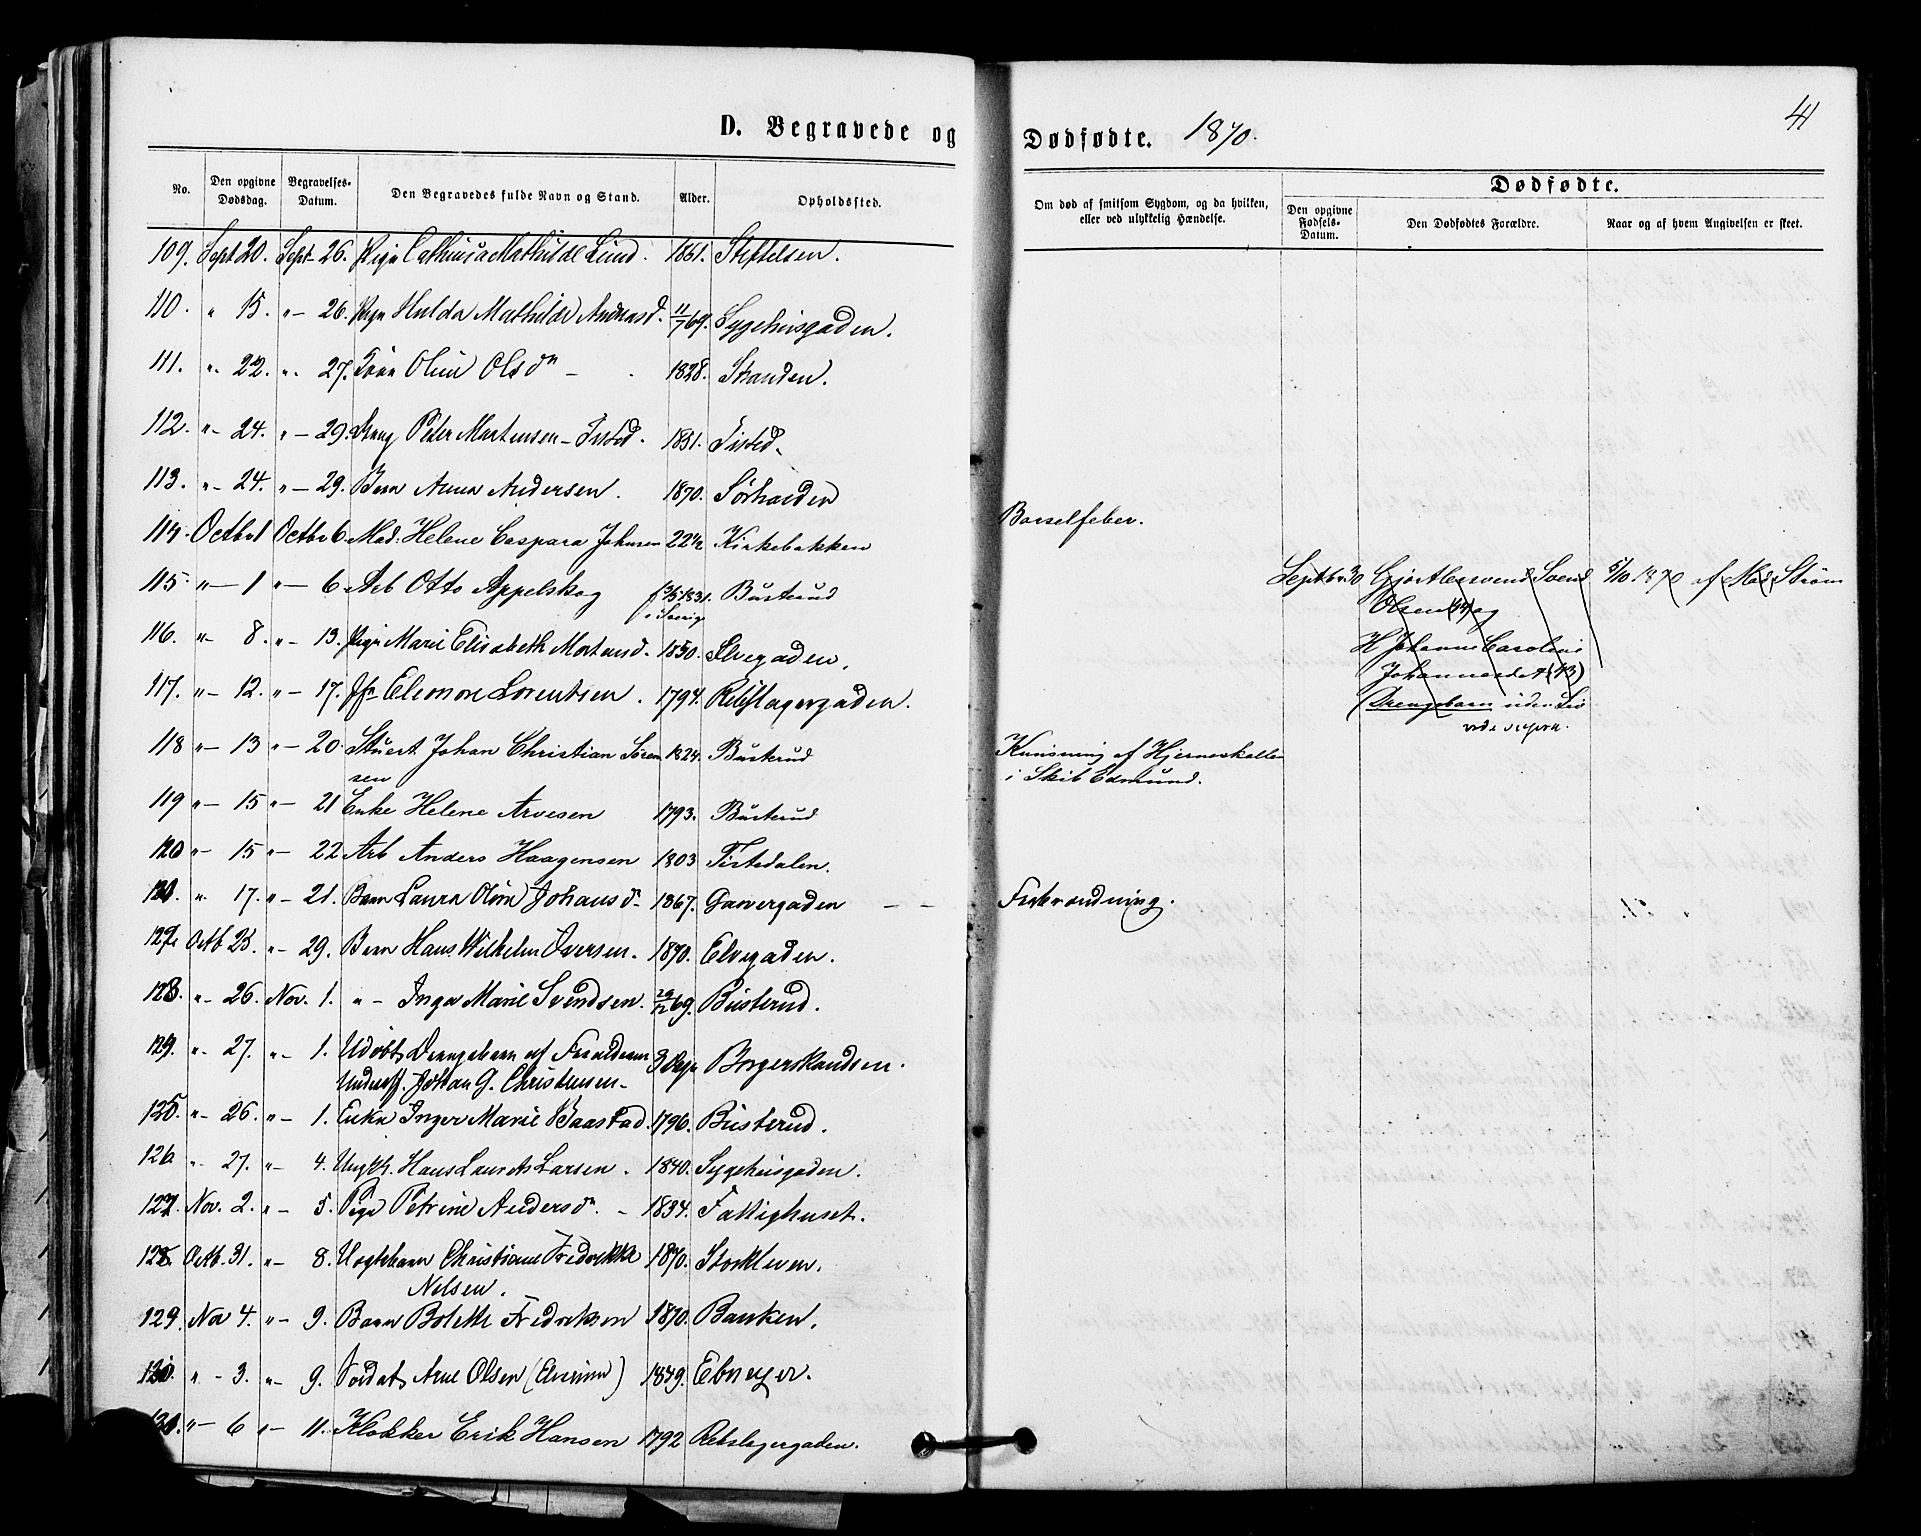 41
D. Begravede og Dødfødte. 1870.
No. Den opgivne Dødsdag. Begravelses-Datum. Den Begravedes fulde Navn og Stand. Alder. Opholdssted. Om død af smitsom Sygdom, og da hvilken, eller ved ulykkelig Hændelse. Dødfødte.
Den opgivne Fødsels-Datum. Den Dødfødtes Forældre. Naar og af hvem Angivelsen er skeet.
109. Sept 20. Sept 26. Pige Mathilde Lund. 1861. Stiftelsen.
110. " 15. "- 26. Pige Hulda Mathilde Andreasd. 11/7 69. Sygehusgaden.
111. "- 22. "- 27. Olsdn 1828. Stranden.
112. "- 24. "- 29. Peter Martensen - Tisted. 1851. Tisted.
113. "- 24. "- 29. Barn Anna Andersen. 1870. Sørhalden
114. Octbr 1 Octbr 6. Mad: Helene Caspara Johnsen 22 1/2 Kirkebakken Barselfeber.
115. "- 1 "- 6 Arb Otto Appelskog f 1831. i Sverige Busterud
Septbr 30 Gjørtlersvend Svend Olsen og
H Johanne Caroline
Johannesdt (43)
(Drengebarn uden Liv
vide supra.
5/10 1870 af Mad. Strøm
116. "- 8. "- 13. Pige Marie Elisabeth Mortensd. 1850. Elvegaden.
117. "- 12. "- 17. Jfr Eleonore Lorentsen. 1794. Rebslagergaden.
118 "- 13 "- 20. Stuert Johan Christian Sørensen 1824. Busterud Knusning af Hjerneskallen
i Skib Edmund.
119 "- 15 "- 21 Enke Helene Arvesen 1793. Busterud
120 "- 15 "- 22 Arb Anders Haagensen 1803 Tistedalen.
121. "- 17. "- 21. Barn Laura Oline Johansd. 1867. Garvergaden - - Forbrænding.
122. Octb 25. "- 29. Barn Hans Wilhelm Iversen. 1870. Elvegaden.
123. "- 26. Nov. 1. "- Inger Marie Svendsen. 69. Busterud.
124. "- 27. "- 1. Udøbt Drengebarn af Forældrene
Underoff. Johan G. Christensen - 3 Dage Borgerskandsen.
125. "- 26. "- 1. Enke Inger Marie Baastad. 1796. Busterud.
126 "- 27. "- 4. Ungk. Hans Laurits Larsen. 1840. Sygehusgaden.
127. Nov. 2. "- 5. Pige Petrine Andersdn. - 1834. Fattighuset.
128. Octb. 31. "- 8. Uægtebarn Christiane Fredrikke
Nelsen. 1870.
129. Nov 4. "- 9. Barn Bolette Fredriksen 1870. Banken.
130. " - 3. "- 9. Soldat Arne Olsen (Elverum) 1849. Ebneyer.
131. "- 6 "- 11. Klokker Erik Hansen 1792 Rebslagergaden.